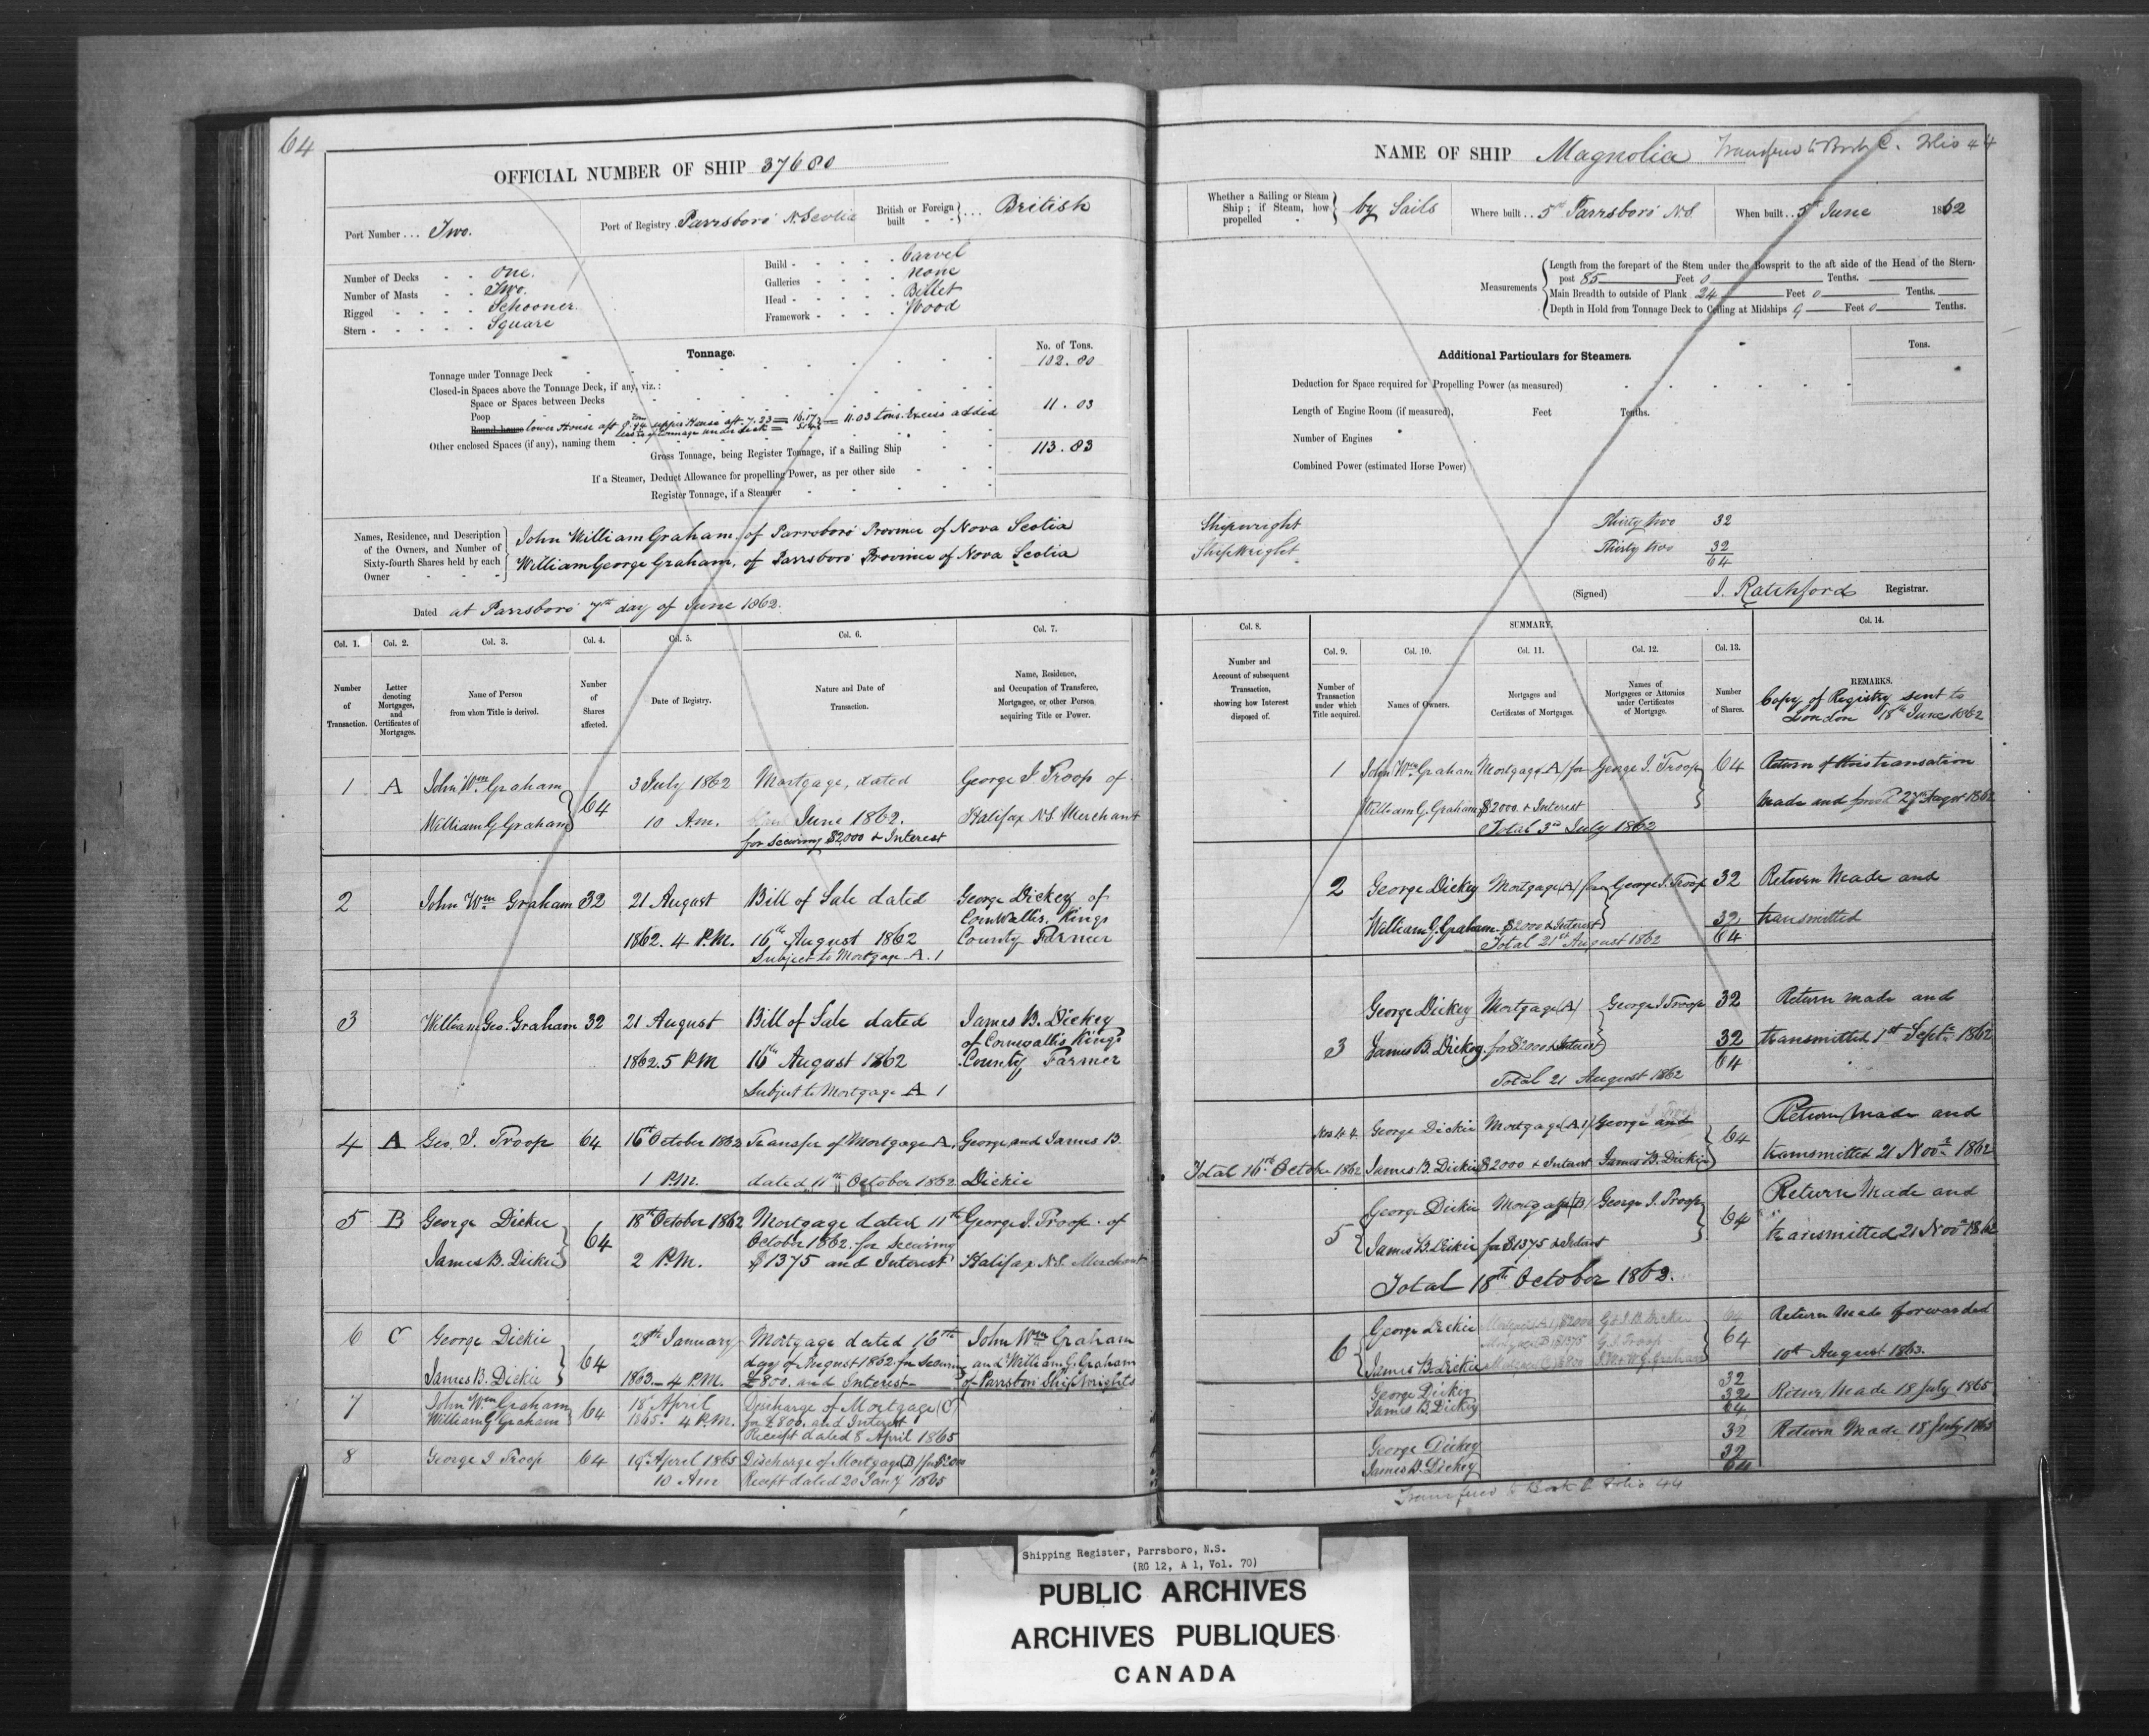 64
OFFICIAL NUMBER OF SHIP 37680
Port Number ... Two.
Port of Registry . Parrsboro N. Scotia
British or Foreign built } ... British
Number of Decks - - One.
Number of Masts - - Two.
Rigged - - - - Schooner.
Stern - - - - - Square
Build - - - - - Carvel
Galleries - - - - none
Head - - - - - Billet
Framework - - - - Wood
Tonnage.
No. of Tons.
Tonnage under Tonnage Deck 102.80
Closed-in Spaces above the Tonnage Deck, if any, viz.:
Space or Spaces between Decks
Poop 11.03
Round-house lower House aft 8.94 upper House aft 7.23 = 16.17 = 11.03 tons Excess added
less of tonnage under deck = 5.14
Other enclosed Spaces (if any), naming them
Gross Tonnage, being Register Tonnage, if a Sailing Ship 113.83
If a Steamer, Deduct Allowance for propelling Power, as per other side
Register Tonnage, if a Steamer
Names, Residence, and Description of the Owners, and Number of Sixty-fourth Shares held by each Owner
John William Graham, of Parrsboro Province of Nova Scotia
William George Graham, of Parrsboro Province of Nova Scotia
Dated at Parrsboro 7th day of June 1862.
Col. 1. Col. 2. Col. 3. Col. 4. Col. 5. Col. 6. Col. 7.
Number of Transaction.
Letter denoting Mortgages, and Certificates of Mortgages.
Name of Person from whom Title is derived.
Number of Shares affected.
Date of Registry.
Nature and Date of Transaction.
Name, Residence, and Occupation of Transferee, Mortgagee, or other Person acquiring Title or Power.
1 A John Wm Graham 3 July 1862 Mortgage, dated George I Troop of
William G Graham } 64 10 Am. June 1862. Halifax N.S. Merchant
for securing $2000 & Interest
2 John Wm Graham 32 21 August Bill of Sale dated George Dickey of
Cornwallis, Kings
1862. 4 P.M. 16th August 1862 County Farmer
Subject to Mortgage A. 1
3 William Geo. Graham 32 21 August Bill of Sale dated James B. Dickey
of Cornwallis Kings
1862. 5 P.M 16th August 1862 County Farmer
Subject to Mortgage A 1
4 A Geo. I. Troop 64 16th October 1862 Transfer of Mortgage A, George and James B.
1 P.M. dated 11th October 1862 Dickie
5 B George Dickie 18th October 1862 Mortgage dated 11th George I. Troop of
October 1862. for Securing
James B. Dickie } 64 2 P.M. $1375 and Interest Halifax N.S. Merchant
6 C George Dickie 28th January Mortgage dated 16th John Wm Graham
64 day of August 1862 for Securing and William G. Graham
James B. Dickie 1863 - 4 P.M. £800. and Interest - of Parrsboro ShipWrights
7 John Wm Graham 18 April Discharge of Mortgage (C)
William G Graham 64 1865. 4 P.M. for £800. and Interest
Receipt dated 8 April 1865
8 George I Troop 64 19th April 1865 Discharge of Mortgage (B)
10 Am Receipt dated 20 Jany 1865
NAME OF SHIP Magnolia Transferred to Book C. Folio 44
Whether a Sailing or Steam Ship; if Steam, how propelled } by Sails
Where built .. Parrsboro N.S.
When built .. 5th June 1862
Measurements
Length from the forepart of the Stem under the Bowsprit to the aft side of the Head of the Stern-
post 85 Feet 0 Tenths.
Main Breadth to outside of Plank 24 Feet 0 Tenths.
Depth in Hold from Tonnage Deck to Ceiling at Midships 9 Feet 0 Tenths.
Additional Particulars for Steamers.
Tons.
Deduction for Space required for Propelling Power (as measured)
Length of Engine Room (if measured), Feet Tenths.
Number of Engines
Combined Power (estimated Horse Power)
Shipwright Thirty two 32
ShipWright Thirty two 32
64
(Signed) I. Ratchford Registrar.
Col. 8. SUMMARY. Col. 14.
Col. 9. Col. 10. Col. 11. Col. 12. Col. 13.
Number and Account of subsequent Transaction, showing how Interest disposed of.
Number of Transaction under which Title acquired.
Names of Owners.
Mortgages and Certificates of Mortgages.
Names of Mortgagees or Attornies under Certificates of Mortgage.
Number of Shares.
REMARKS.
Copy of Registry sent to
London 18th June 1862
1 John Wm Graham Mortgage A) for George I. Troop 64 Return of this transation
William G. Graham $2000. & Interest made and 27 August 1862
Total 3rd July 1862
2 George Dickey Mortgage (A) for George I. Troop 32 Return Made and
William G. Graham $2000 & Interest 32 transmitted
Total 21st August 1862 64
George Dickey Mortgage (A) George I Troop 32 Return made and
3 James B. Dickey. for $2000 & Interest 32 transmitted 1st Septr 1862
Total 21 August 1862 64
George Dickie Mortgage (A 1) George and 64 Return Made and
Total 16th October 1862 James B. Dickie $2000 & Interest James B. Dickie transmitted 21 Novr 1862
George Dickie Mortgage (B) George I. Troop 64 Return Made and
5 James B. Dickie for $1375 & Interest transmitted 21 Novr 1862
Total 18th October 1862.
George Dickie Mortgage A 1 $2000 G & J. B. Dickie 64 Return Made forwarded
6 Mortgage B $1375 G. I. Troop 64
James B. Dickie Mortgage C £800 J. W. & W. G. Graham 10th August 1863.
George Dickey 32
James B. Dickey 32 Return Made 18 July 1865
64
George Dickey 32 Return Made 18 July 1865
James B. Dickey 32
64
Transferred to Book C Folio 44
Shipping Register, Parrsboro, N.S.
(RG 12, A 1, Vol. 70)
PUBLIC ARCHIVES
ARCHIVES PUBLIQUES
CANADA